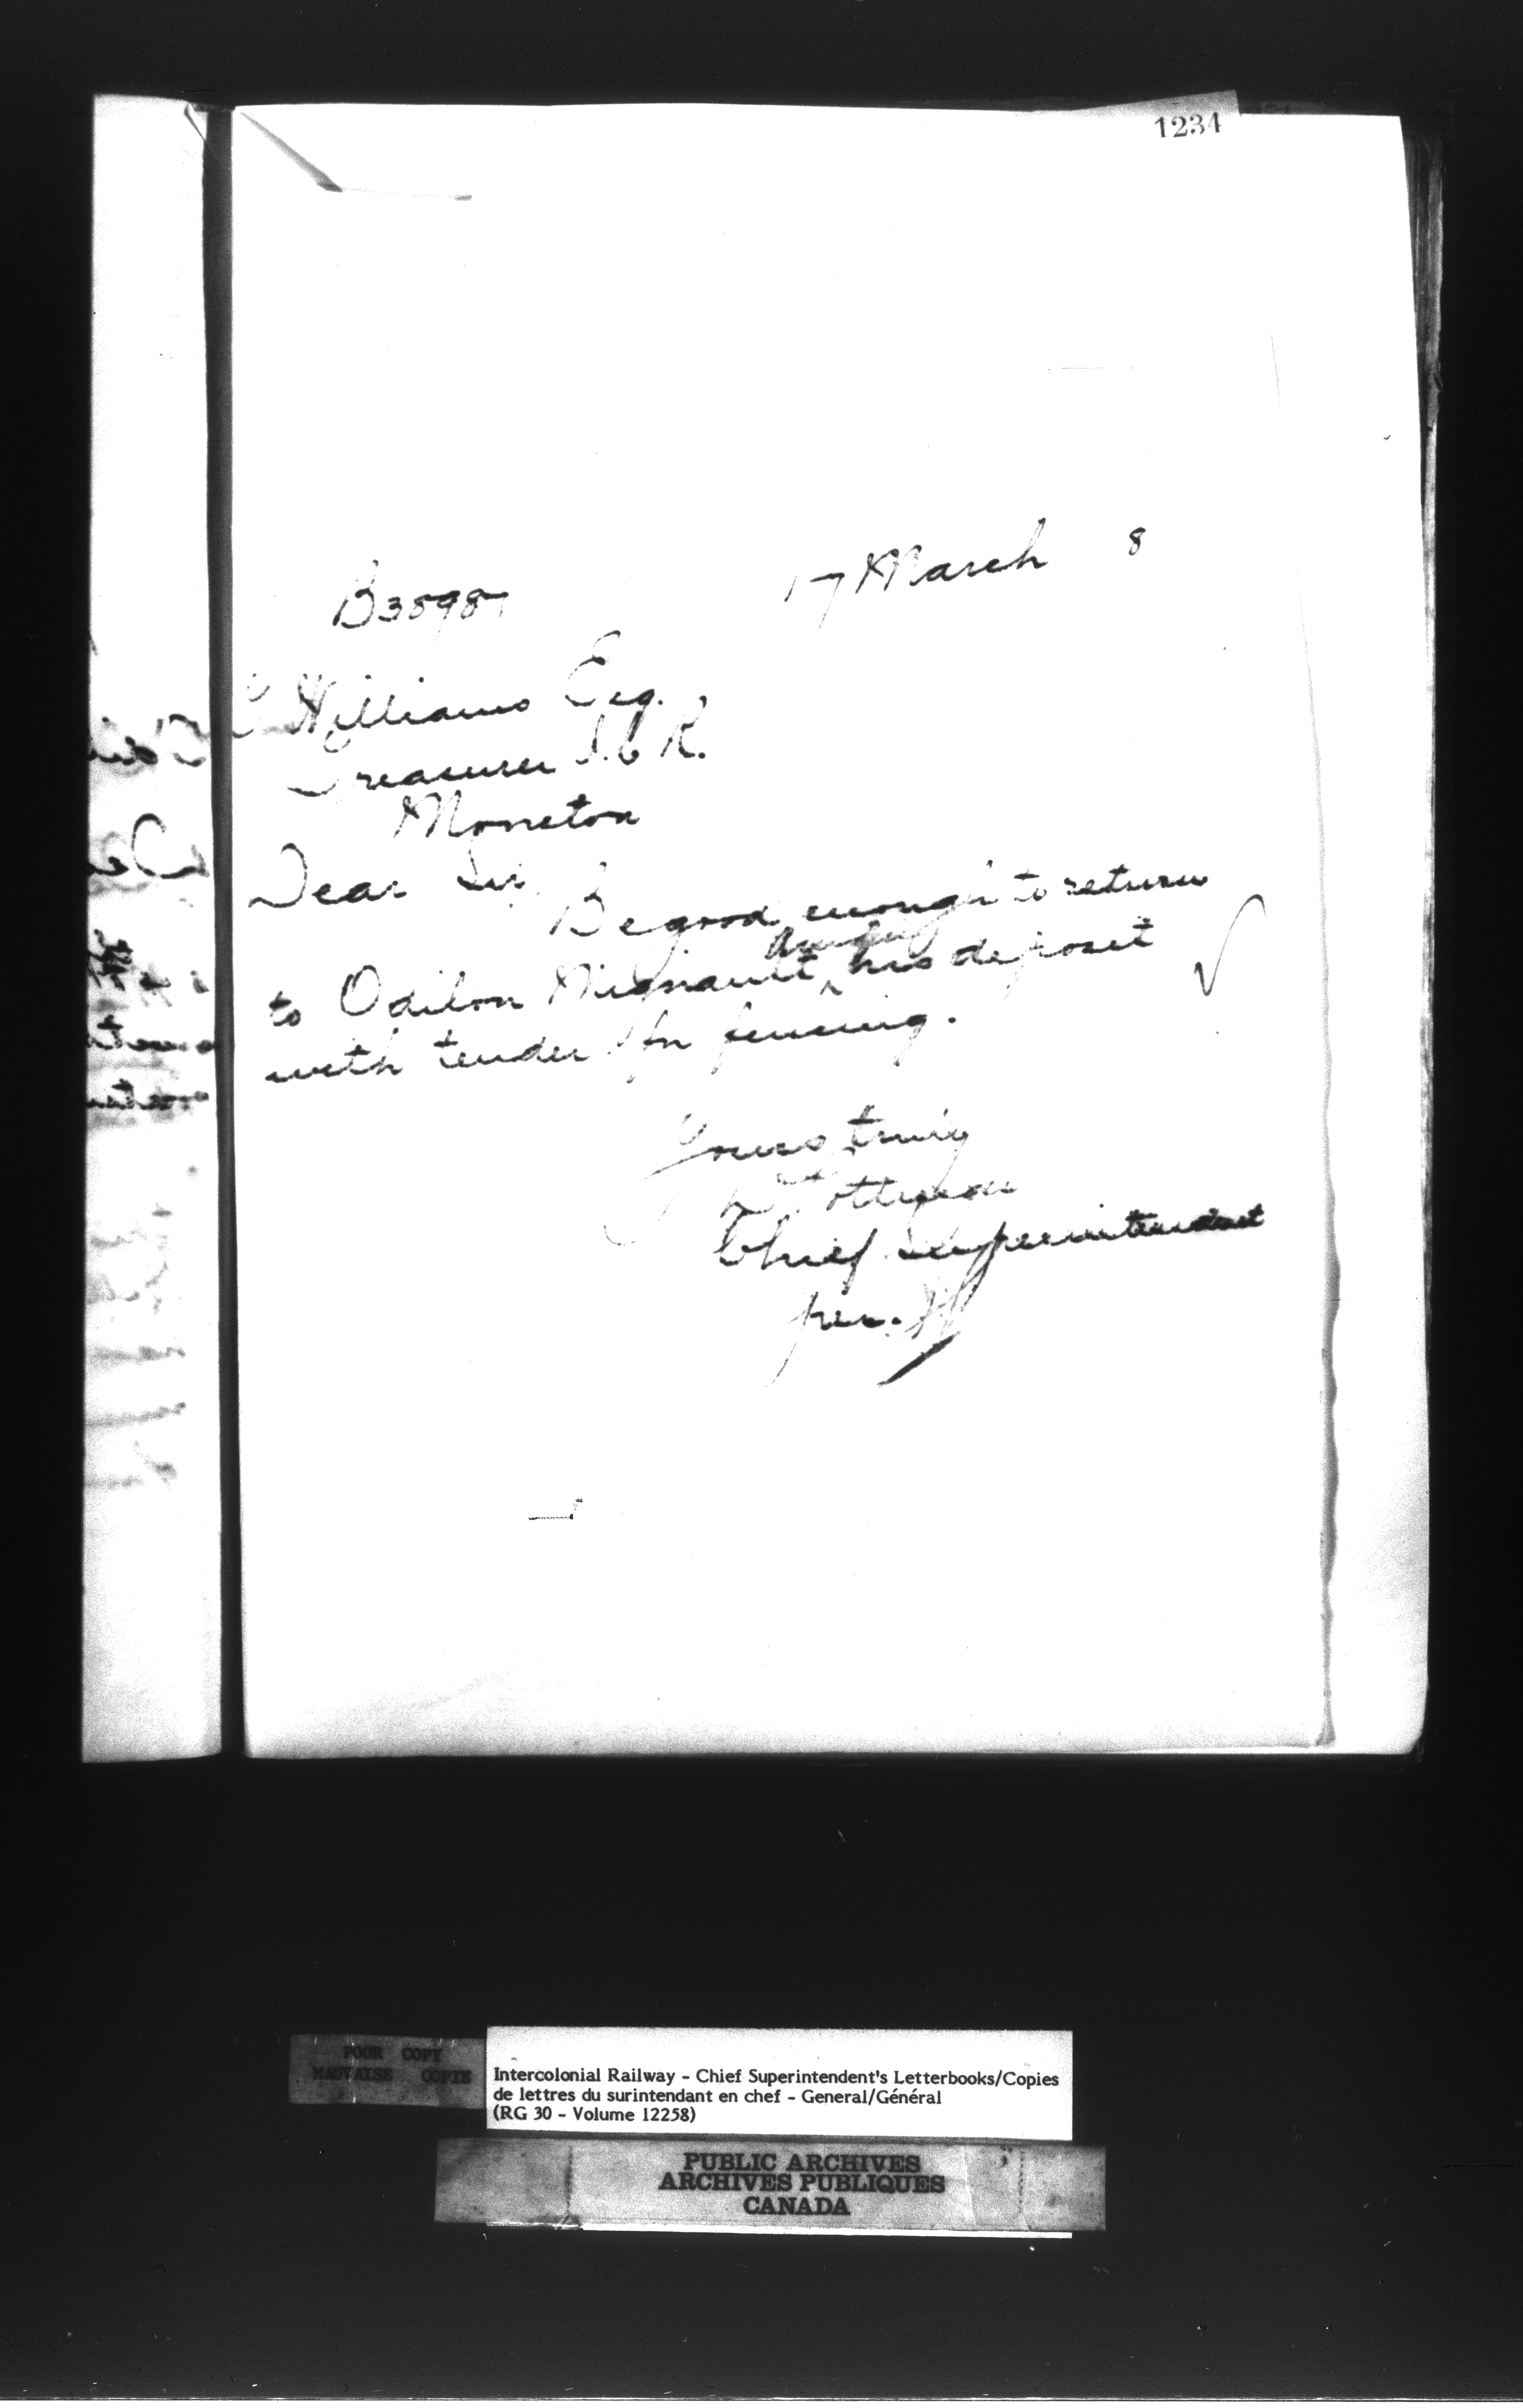 1234
17 March 8
B38987
C Williams Esq.
Treasurer I.C.R.
Moncton
Dear Sir,
Be good enough to return
to Odilon Mignault ^ his deposit
with tender for fencing.
Yours truly
Pottinger
Chief Superintendent
per.
POOR COPY
MAUVAISE COPIE
Intercolonial Railway - Chief Superintendent's Letterbooks/Copies
de lettres du surintendant en chef - General/Général
(RG 30 - Volume 12258)
PUBLIC ARCHIVES
ARCHIVES PUBLIQUES
CANADA